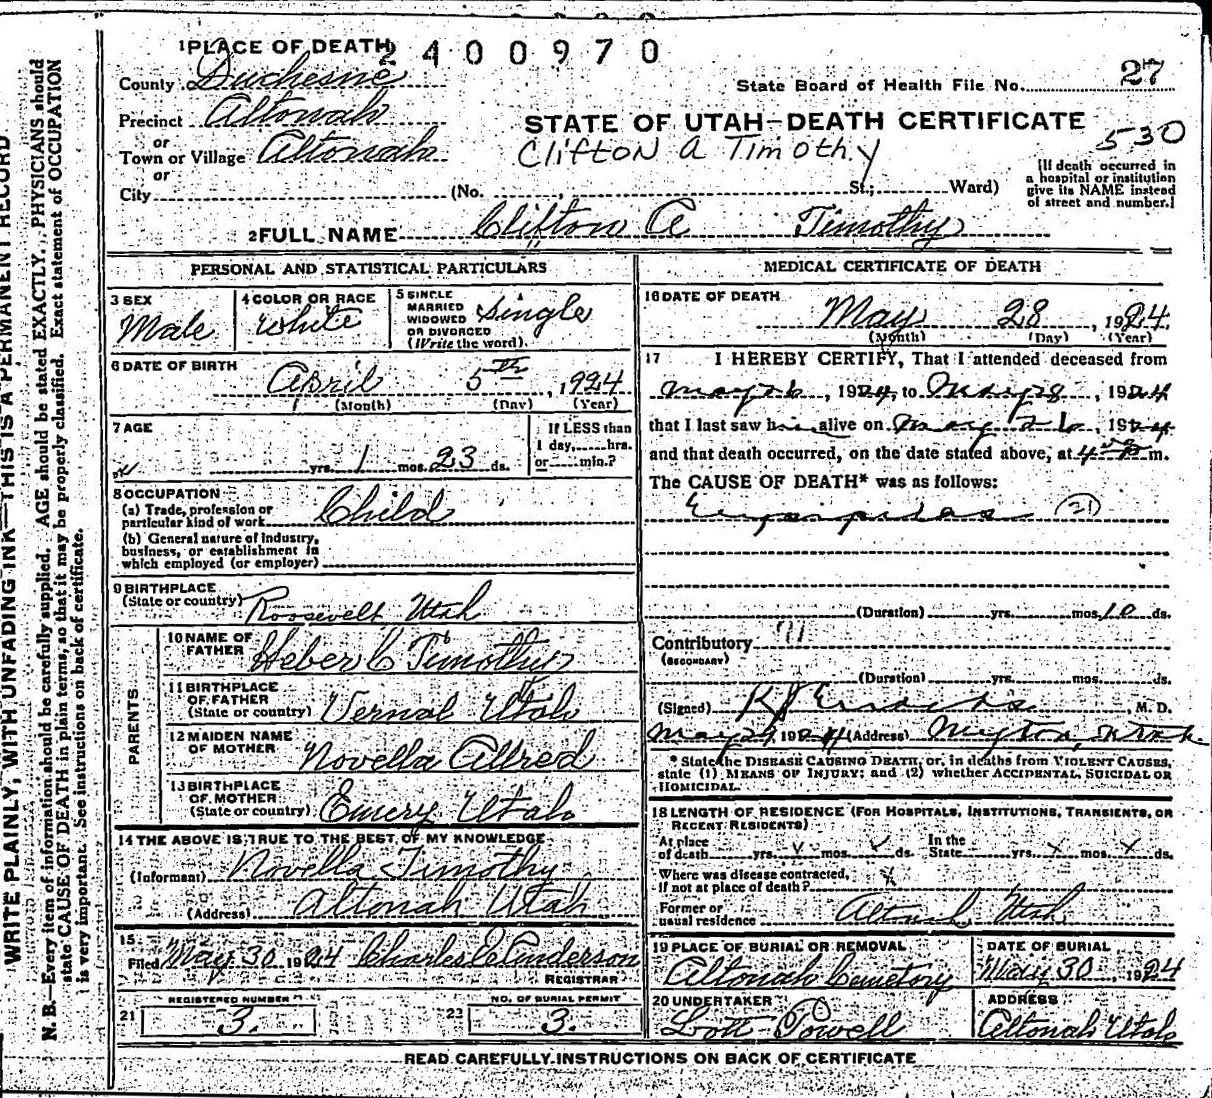 2400970
1 PLACE OF DEATH
County Duchesne
State Board of Health File No. 27
Precinct Altonah
STATE OF UTAH—DEATH CERTIFICATE
530
or
Town or Village Altonah
Clifton A Timothy
or
City (No. , St.; Ward)
[If death occurred in
a hospital or institution
give its NAME instead
of street and number.]
2 FULL NAME Clifton A Timothy
PERSONAL AND STATISTICAL PARTICULARS
3 SEX
Male
4 COLOR OR RACE
White
5 SINGLE
MARRIED
WIDOWED
OR DIVORCED
(Write the word)
Single
6 DATE OF BIRTH
April 5th, 1924
(Month) (Day) (Year)
7 AGE
yrs. 1 mos. 23 ds.
If LESS than
1 day, hrs.
or min.?
8 OCCUPATION
(a) Trade, profession or
particular kind of work Child
(b) General nature of industry,
business, or establishment in
which employed (or employer)
9 BIRTHPLACE
(State or country) Roosevelt, Utah
PARENTS
10 NAME OF
FATHER Heber C Timothy
11 BIRTHPLACE
OF FATHER
(State or country) Vernal Utah
12 MAIDEN NAME
OF MOTHER Novella Allred
13 BIRTHPLACE
OF MOTHER
(State or country) Emery Utah
14 THE ABOVE IS TRUE TO THE BEST OF MY KNOWLEDGE
(Informant) Novella Timothy
(Address) Altonah Utah
15
Filed May 30 1924 Charles E Anderson
REGISTRAR
REGISTERED NUMBER
21 3.
NO. OF BURIAL PERMIT
23 3.
MEDICAL CERTIFICATE OF DEATH
16 DATE OF DEATH
May 28, 1924
(Month) (Day) (Year)
17 I HEREBY CERTIFY, That I attended deceased from
May 26, 1924, to May 28, 1924
that I last saw him alive on May 26, 1924
and that death occurred, on the date stated above, at 4 m.
The CAUSE OF DEATH* was as follows:
Erysipelas (21)
(Duration) yrs. mos. 10 ds.
Contributory
(SECONDARY)
(Duration) yrs. mos. ds.
(Signed) , M. D.
1924 (Address) Myton, Utah
* State the DISEASE CAUSING DEATH, or, in deaths from VIOLENT CAUSES,
state (1) MEANS OF INJURY; and (2) whether ACCIDENTAL, SUICIDAL OR
HOMICIDAL.
18 LENGTH OF RESIDENCE (FOR HOSPITALS, INSTITUTIONS, TRANSIENTS, OR
RECENT RESIDENTS)
At place
of death yrs. mos. ds.
In the
State yrs. mos. ds.
Where was disease contracted,
if not at place of death?
Former or
usual residence Altonah, Utah
19 PLACE OF BURIAL OR REMOVAL
Altonah Cemetery
DATE OF BURIAL
May 30 1924
20 UNDERTAKER
Lott Powell
ADDRESS
Altonah Utah
READ CAREFULLY INSTRUCTIONS ON BACK OF CERTIFICATE
WRITE PLAINLY, WITH UNFADING INK—THIS IS A PERMANENT RECORD
N. B.—Every item of information should be carefully supplied. AGE should be stated EXACTLY. PHYSICIANS should
state CAUSE OF DEATH in plain terms, so that it may be properly classified. Exact statement of OCCUPATION
is very important. See instructions on back of certificate.